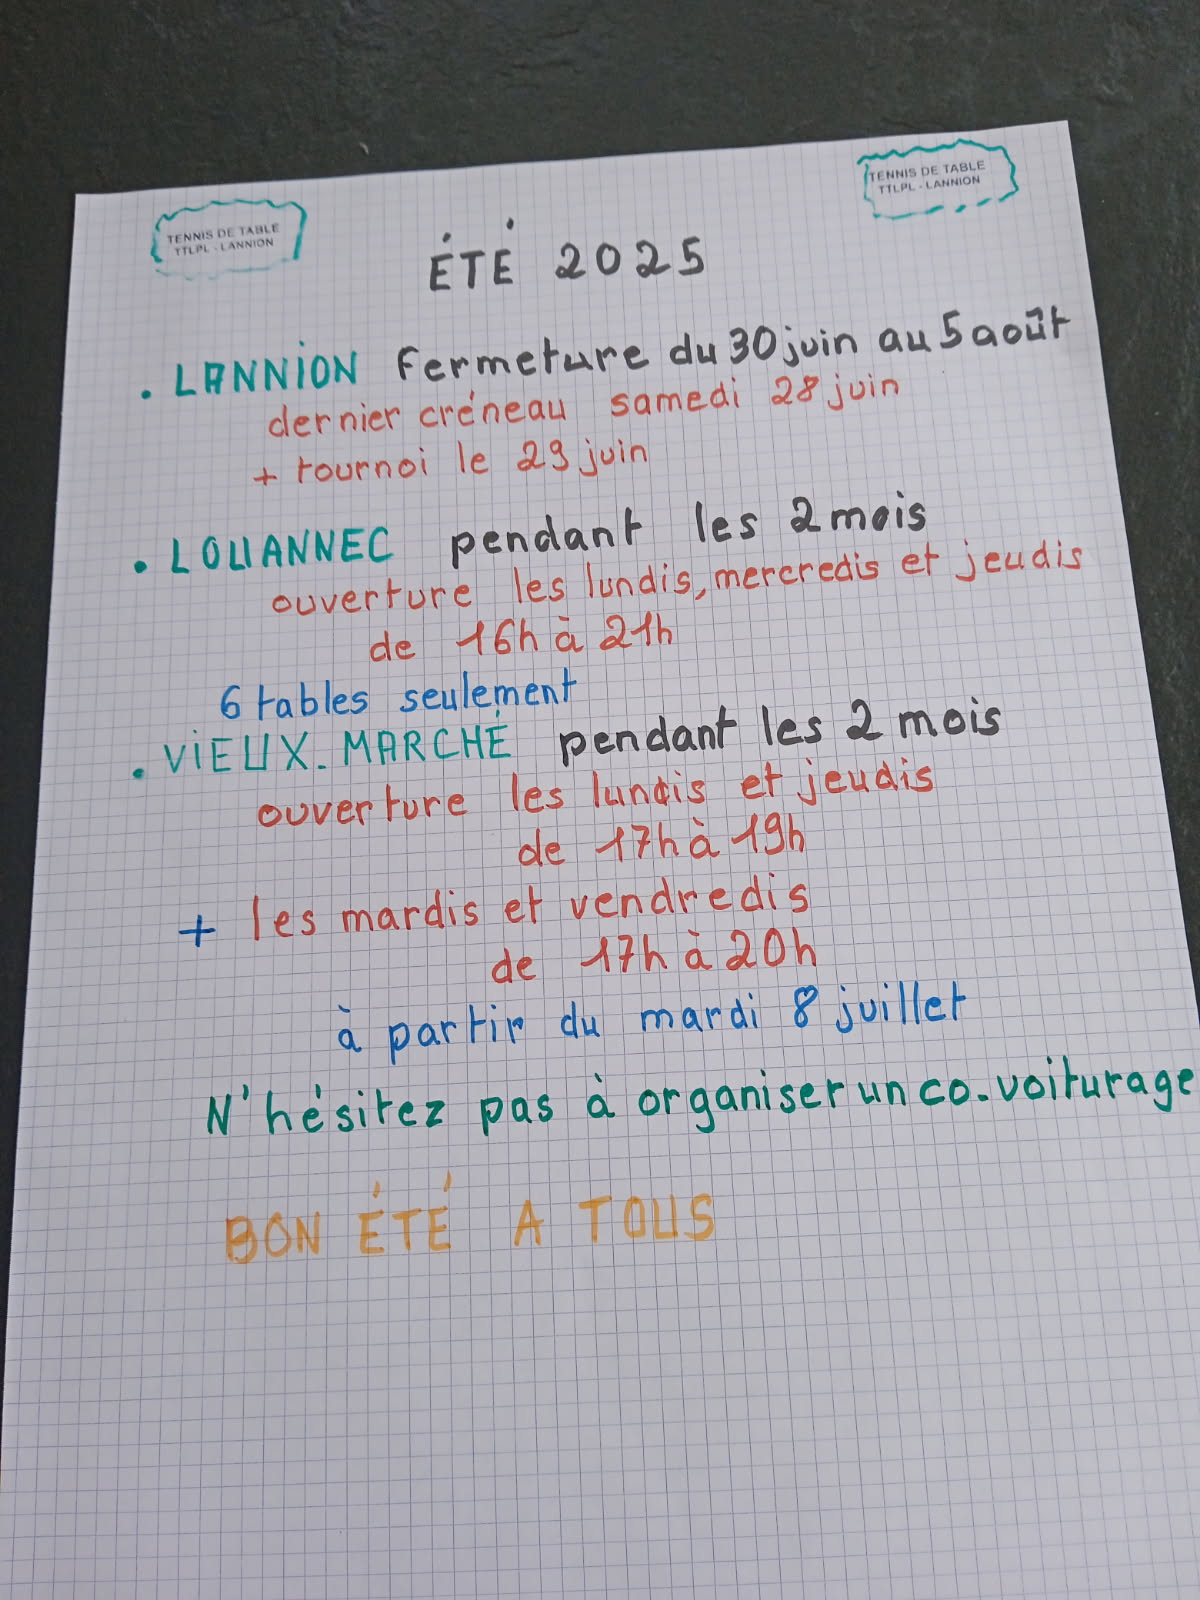 TENNIS DE TABLE
TTLPL - LANNION
TENNIS DE TABLE
TTLPL - LANNION
ÉTÉ 2025
. LANNION fermeture du 30 juin au 5 août
dernier créneau samedi 28 juin
+ tournoi le 29 juin
. LOUANNEC pendant les 2 mois
ouverture les lundis, mercredis et jeudis
de 16h à 21h
6 tables seulement
. VIEUX-MARCHÉ pendant les 2 mois
ouverture les lundis et jeudis
de 17h à 19h
+ les mardis et vendredis
de 17h à 20h
à partir du mardi 8 juillet
N'hésitez pas à organiser un co-voiturage
BON ÉTÉ A TOUS